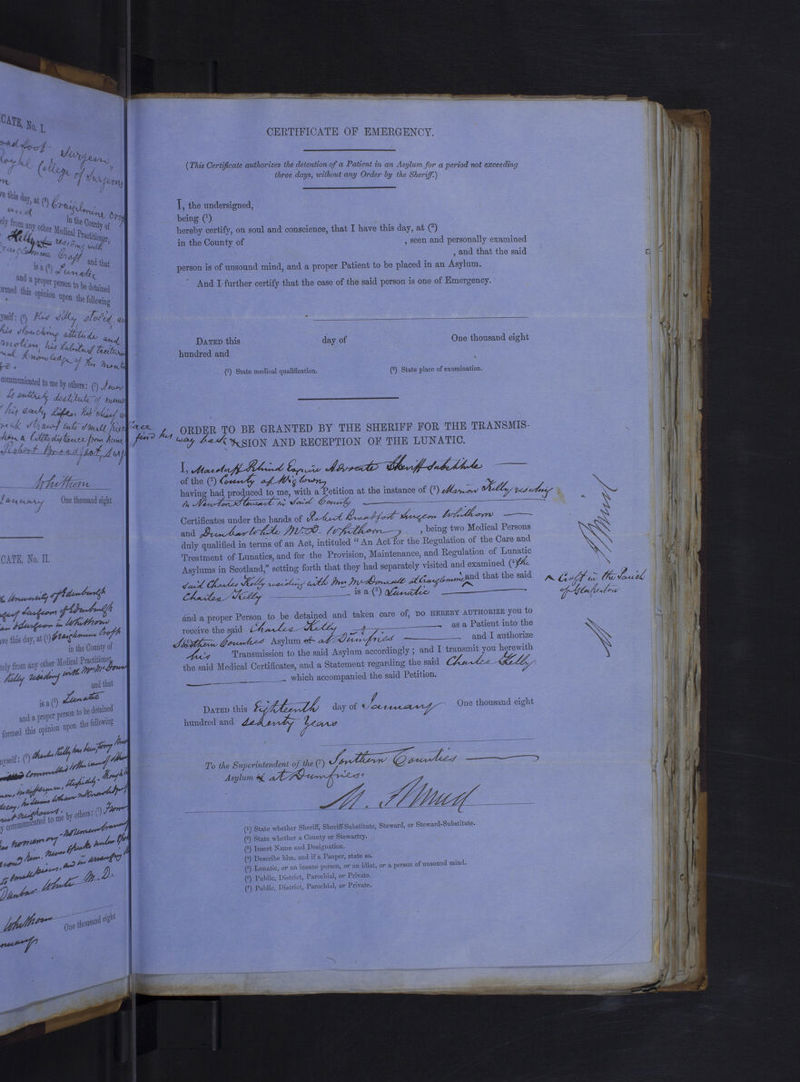 CATE, No. I.
Surgeon,
Royal College of Surgeons
this day, at (²) Craiglemine Croft
in the County of
ely from any other Medical Practitioner,
Kelly residing with
Croft and that
is a (⁵) Lunatic
and a proper person to be detained
ormed this opinion upon the following
yself: (⁶) His silly
his slouching attitude and
communicated to me by others: (⁷)
is entirely destitute of
his early life. his chief
straws into small pieces
a little distance from home
Robert Broadfoot, Surg
Whithorn
January One thousand eight
CATE, No. II.
University of Edinburgh
Surgeons of Edinburgh
Surgeon in Whithorn
ve this day, at (²) Craiglemine Croft
in the County of
tely from any other Medical Practitioner,
Kelly residing with Mrs McDowall
and that
is a (⁵) Lunatic
and a proper person to be detained
formed this opinion upon the following
myself: (⁶) Charles Kelly has been
y communicated to me by others: (⁷) From
no memory
Dunbar White M.D.
Whithorn
One thousand eight
face
find his way back
CERTIFICATE OF EMERGENCY.
(This Certificate authorizes the detention of a Patient in an Asylum for a period not exceeding
three days, without any Order by the Sheriff.)
I, the undersigned,
being (¹)
hereby certify, on soul and conscience, that I have this day, at (²)
in the County of , seen and personally examined
, and that the said
person is of unsound mind, and a proper Patient to be placed in an Asylum.
And I further certify that the case of the said person is one of Emergency.
DATED this day of One thousand eight
hundred and
(¹) State medical qualification. (²) State place of examination.
ORDER TO BE GRANTED BY THE SHERIFF FOR THE TRANSMIS-
SION AND RECEPTION OF THE LUNATIC.
I, Marduff Rhind Esquire Advocate Sheriff Substitute
of the (²) County of Wigtown
having had produced to me, with a Petition at the instance of (³) Marion Kelly residing
in Newton Stewart in said County
Certificates under the hands of Robert Broadfoot Surgeon Whithorn
and Dunbar White M.D. Whithorn , being two Medical Persons
duly qualified in terms of an Act, intituled "An Act for the Regulation of the Care and
Treatment of Lunatics, and for the Provision, Maintenance, and Regulation of Lunatic
Asylums in Scotland," setting forth that they had separately visited and examined (⁴) the
said Charles Kelly residing with Mrs McDowall at Craiglemine and that the said
Charles Kelly is a (⁵) Lunatic
Croft in the Parish
of Glasserton
and a proper Person to be detained and taken care of, DO HEREBY AUTHORIZE you to
receive the said Charles Kelly as a Patient into the
Southern Counties Asylum at Dumfries and I authorize
his Transmission to the said Asylum accordingly; and I transmit you herewith
the said Medical Certificates, and a Statement regarding the said Charles Kelly
which accompanied the said Petition.
DATED this Eighteenth day of January One thousand eight
hundred and seventy years
To the Superintendent of the (⁷) Southern Counties
Asylum at Dumfries.
M. Rhind
(¹) State whether Sheriff, Sheriff-Substitute, Steward, or Steward-Substitute.
(²) State whether a County or Stewartry.
(³) Insert Name and Designation.
(⁴) Describe him, and if a Pauper, state so.
(⁵) Lunatic, or an insane person, or an idiot, or a person of unsound mind.
(⁶) Public, District, Parochial, or Private.
(⁷) Public, District, Parochial, or Private.
M Rhind